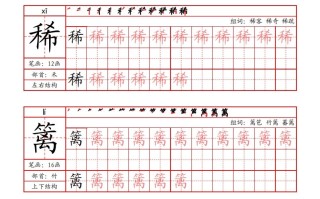 xī
组词: 稀客 稀奇 稀疏
稀 稀 稀 稀 稀 稀 稀 稀 稀 稀 稀
笔画: 12画
部首: 禾 稀 稀 稀 稀 稀 稀
左右结构
lí
组词: 篱笆 竹篱
篱 篱 篱 篱 篱 篱 篱 篱 篱 篱 篱
笔画: 16画
部首: 竹 篱 篱 篱 篱 篱 篱
上下结构